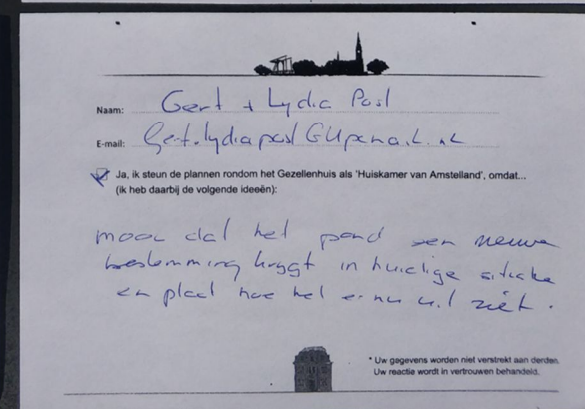 Naam: Gert + Lydia Post
E-mail:
Ja, ik steun de plannen rondom het Gezellenhuis als 'Huiskamer van Amstelland', omdat...
(ik heb daarbij de volgende ideeën):
mooi dat het pand een nieuwe
bestemming krijgt in huidige
en plaat hoe het er nu uit ziet.
* Uw gegevens worden niet verstrekt aan derden.
Uw reactie wordt in vertrouwen behandeld.